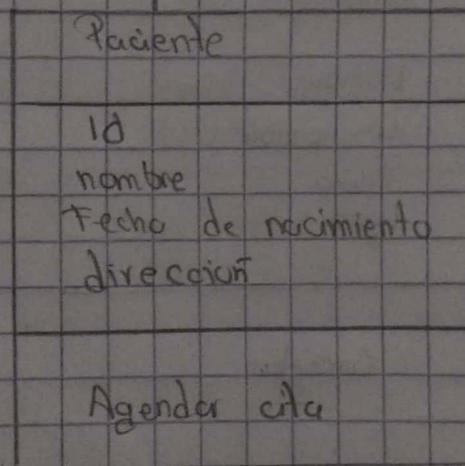 Paciente
Id
nombre
Fecha de nacimiento
dirección
Agendar cita